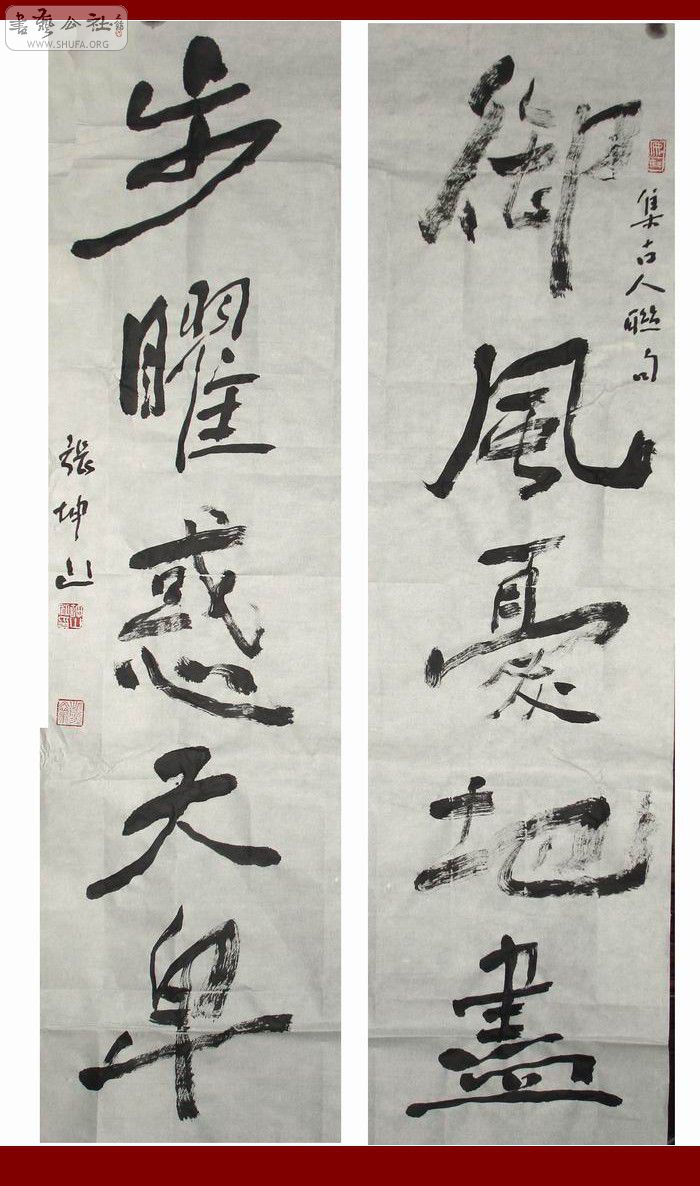 御風憂地盡
集古人聯句
步曜惑天卑
張坤山
書藝公社
WWW.SHUFA.ORG